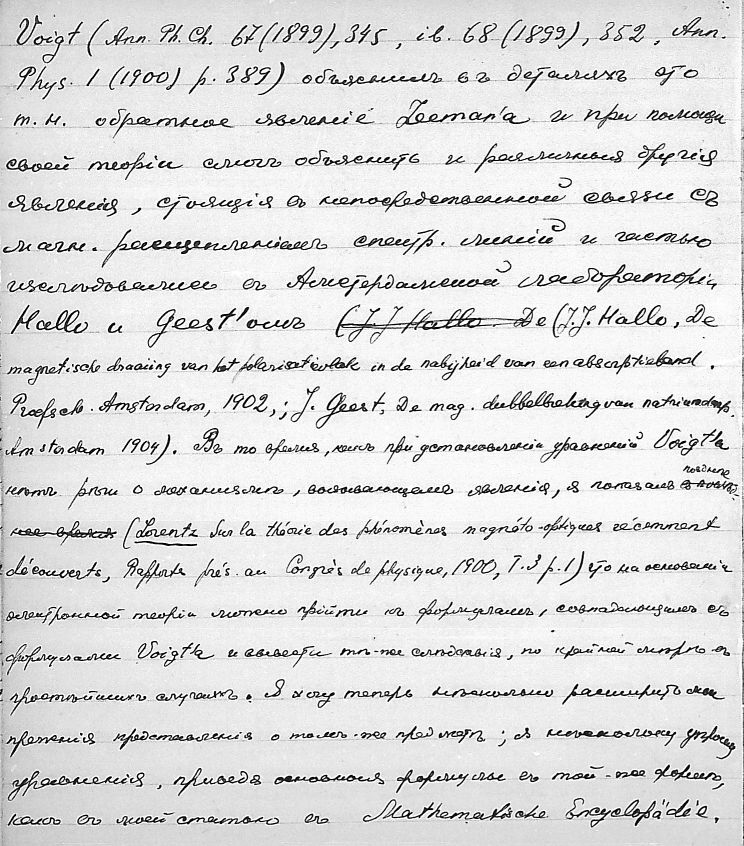 Voigt (Ann. Ph. Ch. 67 (1899), 345, ib. 68 (1899), 352, Ann.
Phys. 1 (1900) p. 389) объяснилъ въ деталяхъ это
т. н. обратное явленіе Zeeman'a и при помощи
своей теоріи смогъ объяснить и различныя другія
явленія, стоящія въ непосредственной связи съ
магн. расщепленіемъ спектр. линій и частью
изслѣдовались въ Амстердамской лабораторіи
Hallo и Geest'омъ (J. J Hallo. De (J. J. Hallo, De
magnetische draaiing van het polarisatievlak in de nabijheid van een absorptieband.
Proefsch. Amsterdam, 1902,; J. Geest, De mag. dubbelbreking van natriumdamp.
Amsterdam 1904). Въ то время, какъ при установленіи уравненій Voigt'a
нѣтъ рѣчи о механизмѣ, вызывающемъ явленія, я показалъ позднѣе
нее время (Lorentz Sur la théorie des phénomènes magnéto-optiques récemment
découverts, Rapports prés. au Congrès de physique, 1900, T. 3 p. 1) что на основаніи
электронной теоріи можно прійти къ формуламъ, совпадающимъ съ
формулами Voigt'a и вывести тѣ-же слѣдствія, по крайней мѣрѣ въ
простѣйшихъ случаяхъ. Я хочу теперь нѣсколько расширить мои
прежнія представленія о томъ-же предметѣ; я нѣсколько упрощу
уравненія, приведя основныя формулы въ той-же формѣ,
какъ въ моей статьѣ въ Mathematische Encyclopädie.